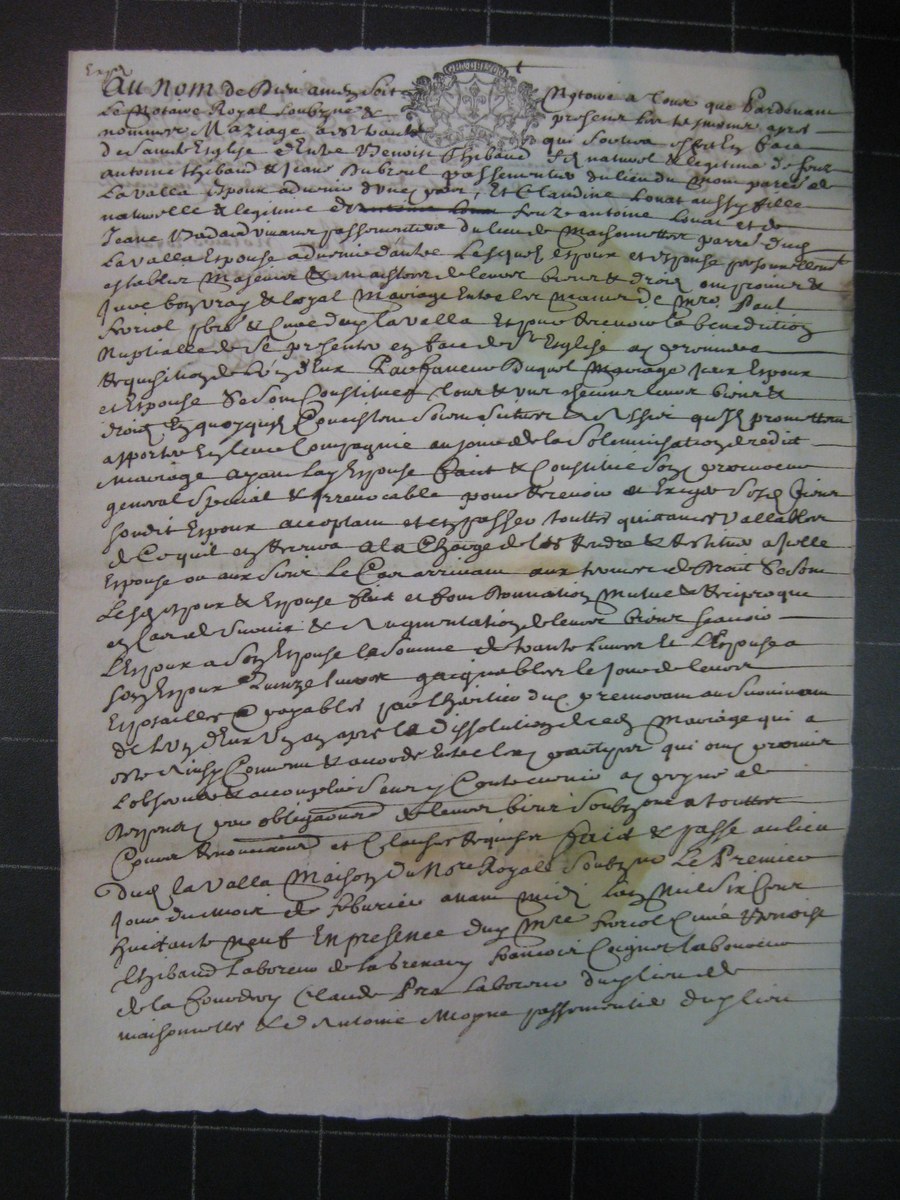 Expé
Au Nom de Dieu amen Soit Notoire a Tous que Pardevant
Le Notaire Royal Soubzné & presens les tesmoins apres
nommes Mariage a esté traité qui Se fera en face
de Sainte Eglise Entre Benoist Thibaud filz naturel & legitime de feuz
antoine Thibaud & Jeane Dubreul passementier du lieu du parre de
La valla Espoux advenir d'une part, Et Claudine Louat aussy fille
naturelle & legitime de feuz antoine Louat et de
Jeane vivants passementier du lieu de Maisonnettes parre dud
Lavalla Espouse advenir d'autre Lesquels espoux et espouse personnellement
establies & maistres de leurs biens & droits ont promis &
Juré bon vray & loyal Mariage Entre les mains de Mre Paul
foriol pbre & Curé dud lavalla Et pour Recevoir la benediction
Nuptialle de Se presenter en face de Ste Eglise a la premiere
Requisition de l'un d'Eux En faveur Duquel Mariage Iceux Espoux
et Espouse Se Sont Constitués Tous & uns chacuns leurs biens &
droits En quoy qu'ilz Consistent qu'ilz promettent
apporter En leur Compagnie au jour de la Solemnisation dudit
mariage ayant Lad Espouse fait & Constitué Son procureur
general Special & Irrevocable pour Recevoir & Exiger Sesd biens
Sondit Espoux acceptant et en passer toutes quittances vallables
de Ce quil en Recevra a la Charge de les Rendre & Restituer a Icelle
Espouse ou aux Siens Le Cas arrivant aux termes de Droit Se Sont
Lesd Espoux & Espouse fait et font Donnation Mutuelle & Reciproque
en Cas de Survie & Augmentation de leurs biens Scavoir
L'Espoux a Son Espouse la Somme de trante livres & L'Espouse a
Son Espoux Quinze livres gaignables le Jour de leurs
Espousailles & payables par l'heritier du premourant au Survivant
de l'un d'Eux Un an apres la Dissolution de ced Mariage qui a
esté Ainsy Convenu & accordé Entre lesd parties qui ont promis
L'observer & accomplir Sans y Contrevenir a peyne de
Despens par obligation de leurs biens Soubzmis a toutes
Cours Renonciations et Clauses Requises fait & passé au lieu
Dud la Valla Maison du Nore Royal Soubzné Le Premier
Jour du mois de feburier avant midy L'an Mil Six Cens
huictante neuf En presence dud Mre foriol Curé Benoist
Thibaud Laboreur de francois Laboureur
de la Claude Pra Laboreur dud lieu de
maisonnettes & d'Antoine Moyne passementier dud lieu